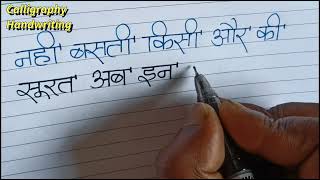 Calligraphy
Handwriting
नही बसती किसी और की
सूरत अब इन